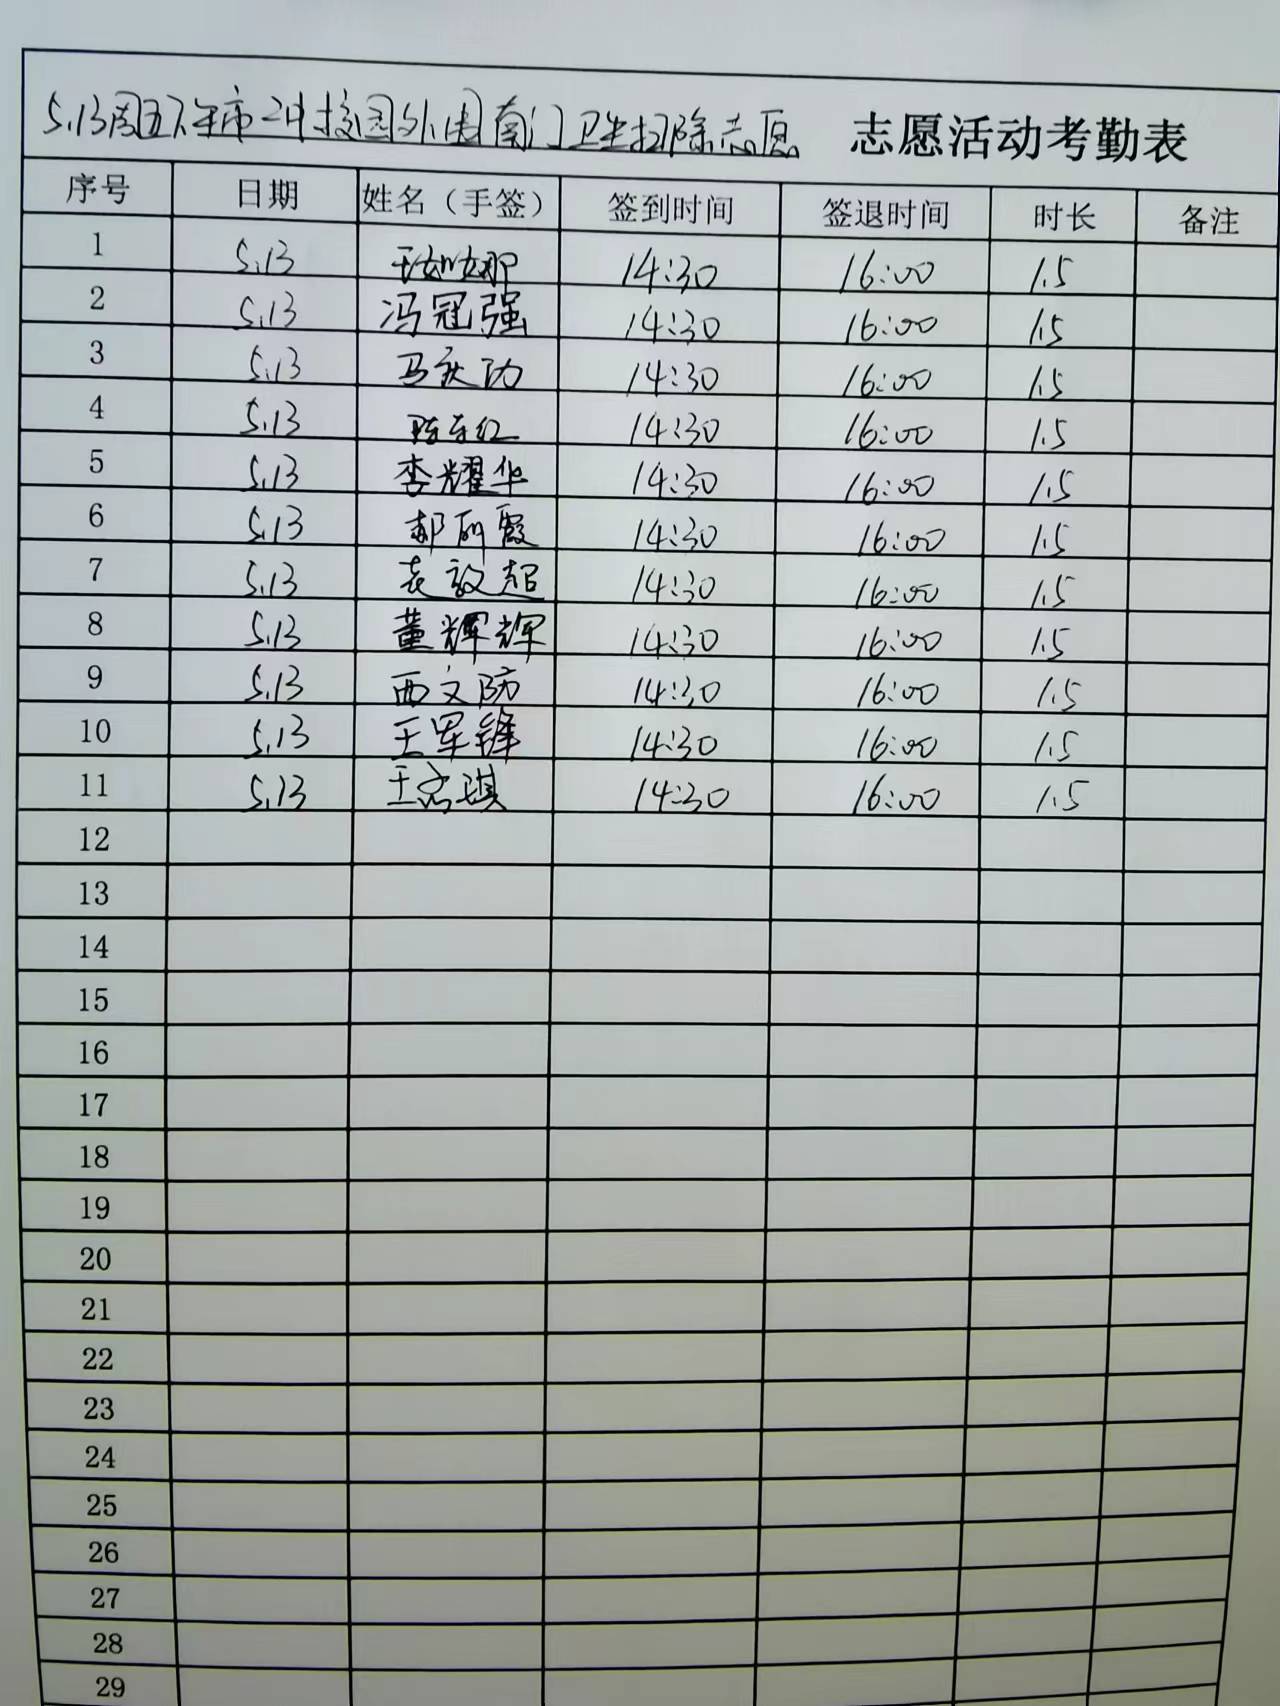 5.13周五下午市二中校园外围南门卫生扫除志愿 志愿活动考勤表
序号 日期 姓名（手签） 签到时间 签退时间 时长 备注
1 5.13 14:30 16:00 1.5
2 5.13 冯冠强 14:30 16:00 1.5
3 5.13 马庆功 14:30 16:00 1.5
4 5.13 14:30 16:00 1.5
5 5.13 李耀华 14:30 16:00 1.5
6 5.13 郝丽霞 14:30 16:00 1.5
7 5.13 袁敬超 14:30 16:00 1.5
8 5.13 董辉辉 14:30 16:00 1.5
9 5.13 西文防 14:30 16:00 1.5
10 5.13 王军锋 14:30 16:00 1.5
11 5.13 14:30 16:00 1.5
12
13
14
15
16
17
18
19
20
21
22
23
24
25
26
27
28
29